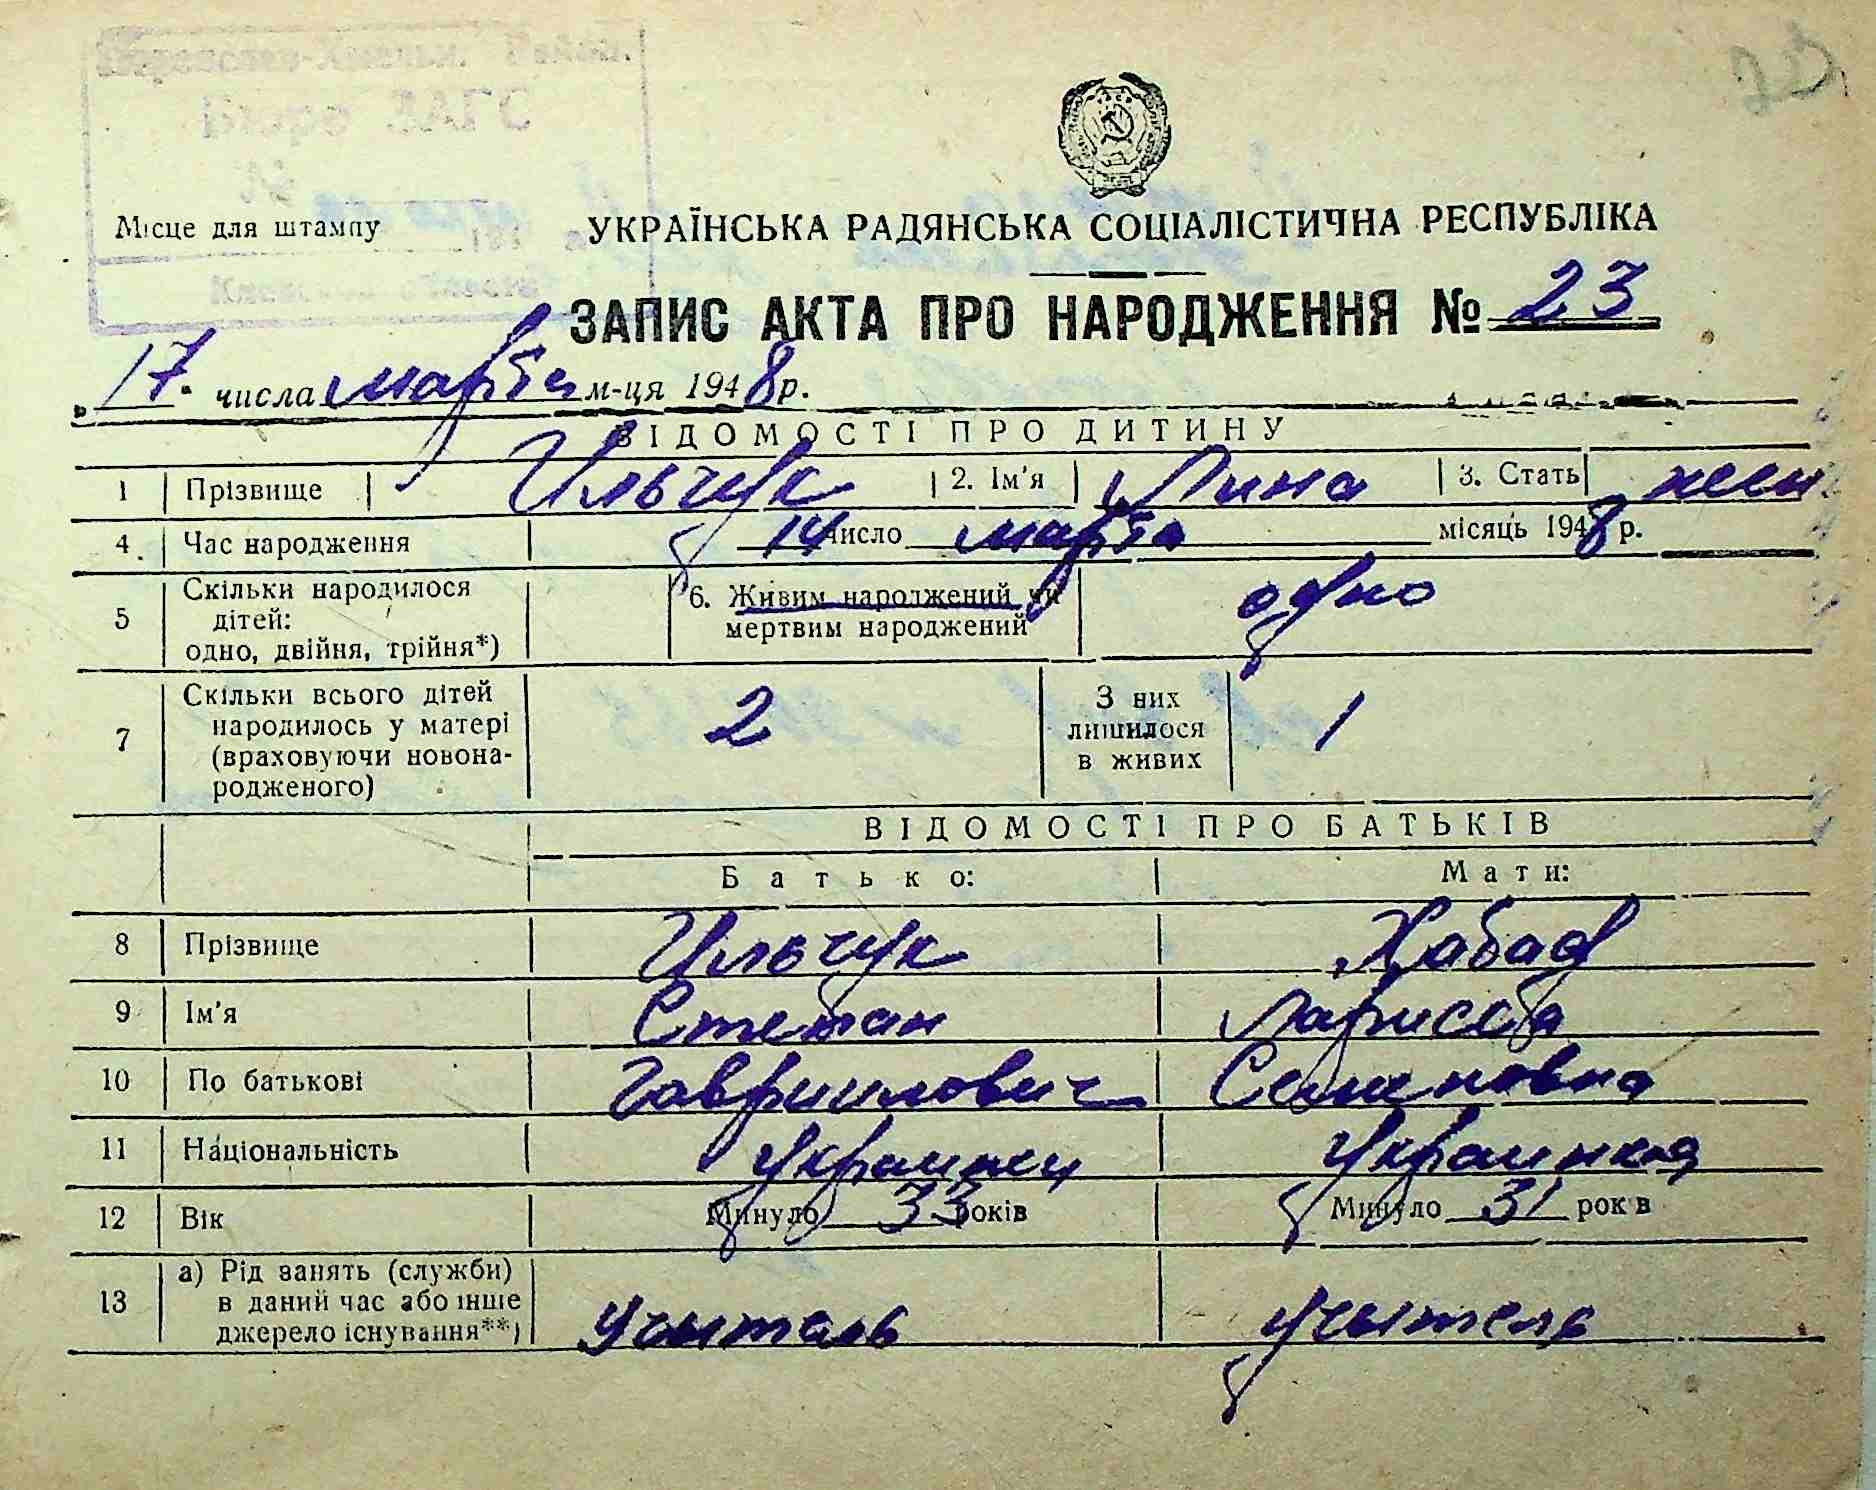 Бюро ЗАГС
Місце для штампу
УКРАЇНСЬКА РАДЯНСЬКА СОЦІАЛІСТИЧНА РЕСПУБЛІКА
ЗАПИС АКТА ПРО НАРОДЖЕННЯ № 23
„ 17 " числа марта м-ця 1948 р.
ВІДОМОСТІ ПРО ДИТИНУ
1 Прізвище Ильчук 2. Ім'я Лина 3. Стать жен
4. Час народження 14 число марта місяць 1948 р.
5 Скільки народилося дітей: одно, двійня, трійня*) 6. Живим народжений чи мертвим народжений одно
7 Скільки всього дітей народилось у матері (враховуючи новонародженого) 2 З них лишилося в живих 1
ВІДОМОСТІ ПРО БАТЬКІВ
Батько: Мати:
8 Прізвище Ильчук Хабад
9 Ім'я Степан Лариса
10 По батькові Гавриилович Семеновна
11 Національність украинец украинка
12 Вік Минуло 33 років Минуло 31 рок в
13 а) Рід занять (служби) в даний час або інше джерело існування**) учитель учитель